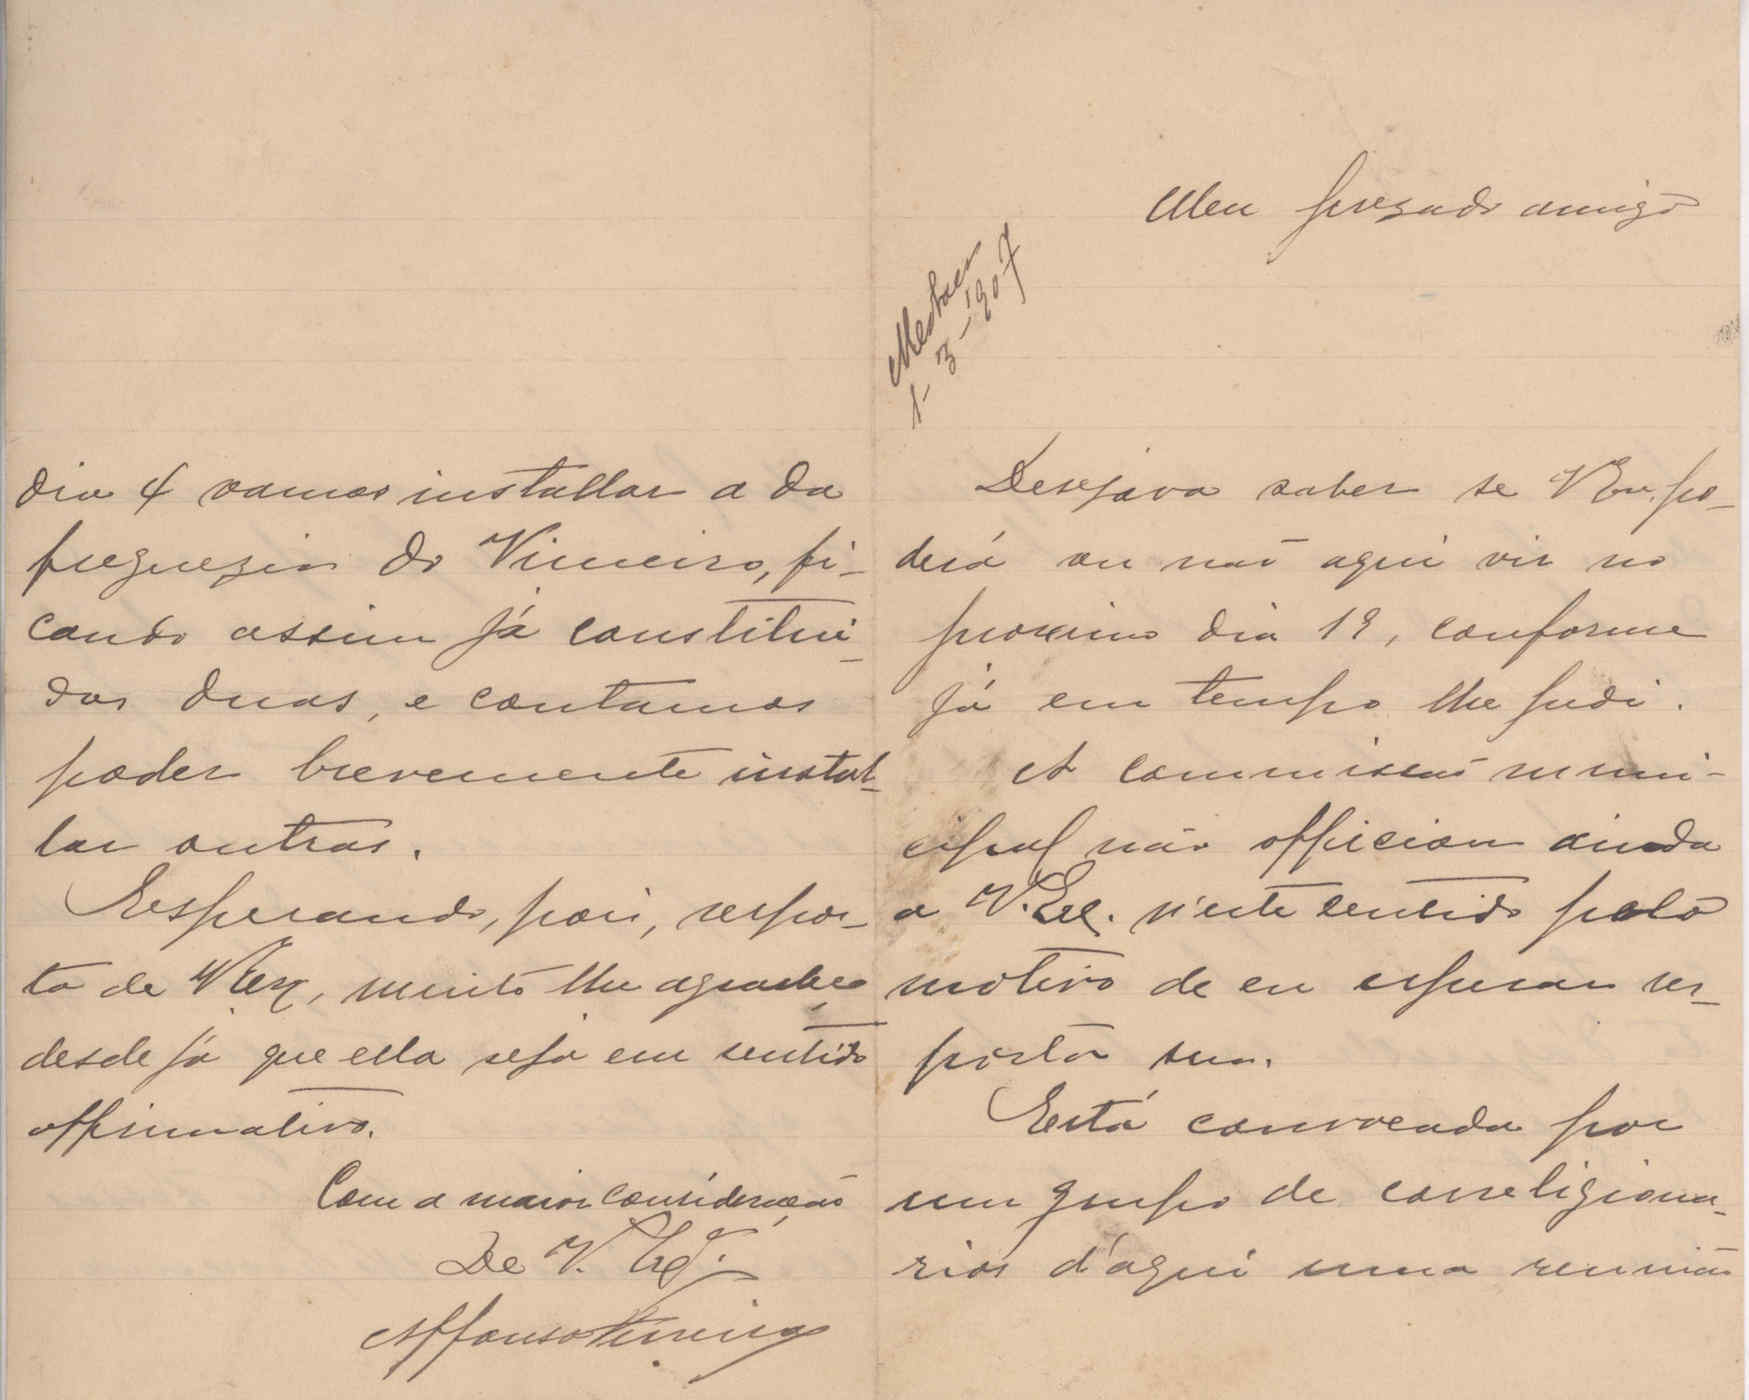 Meu prezado amigo
1-3-907
Desejava saber se V Ex. po-
derá ou não aqui vir no
proximo dia 19, conforme
já em tempo lhe pedi.
A commissão muni-
cipal não officiou ainda
a V. Exc. n'este sentido pelo
motivo de eu esperar res-
posta sua.
Está convocada por
um grupo de correligiona-
rios d'aqui uma reunião
dia 4 vamos installar a da
freguezia do Vimeiro, fi-
cando assim já constitui-
das duas, e contamos
poder brevemente instal-
lar outras.
Esperando, pois, respos-
ta de V Ex, muito lhe agradeço
desde já que ella seja em sentido
affirmativo.
Com a maior consideração
De V. Exª.
Affonso Ferreira